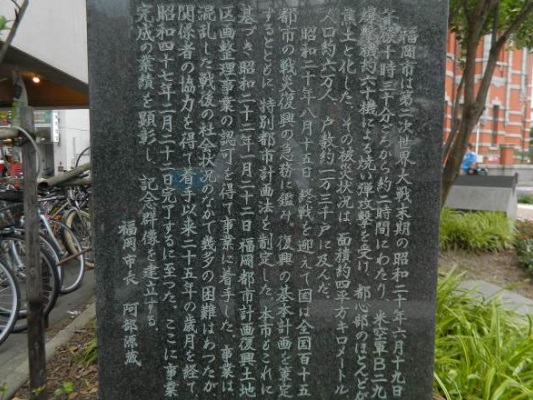 福岡市は第二次世界大戦末期の昭和二十年六月十九日
午後十時三十分ごろから約二時間にわたり、米空軍B二九
爆撃機約六十機による焼い弾攻撃を受け、都心部のほとんどが
焦土と化した。その被災状況は、面積約四平方キロメートル、
人口約六万人、戸数約一万三千戸に及んだ。
昭和二十年八月十五日、終戦を迎えて国は全国百十五
都市の戦災復興の急務に鑑み、復興の基本計画を策定
するとともに、特別都市計画法を制定した。本市もこれに
基づき、昭和二十二年一月二十二日福岡都市計画復興土地
区画整理事業の認可を得て事業に着手した。事業は、
混乱した戦後の社会状況のなかで幾多の困難はあつたが
関係者の協力を得て着手以来二十五年の歳月を経て、
昭和四十七年二月二十二日完了するに至つた。ここに事業
完成の業績を顕彰し、記念群像を建立する。
福岡市長 阿部源蔵